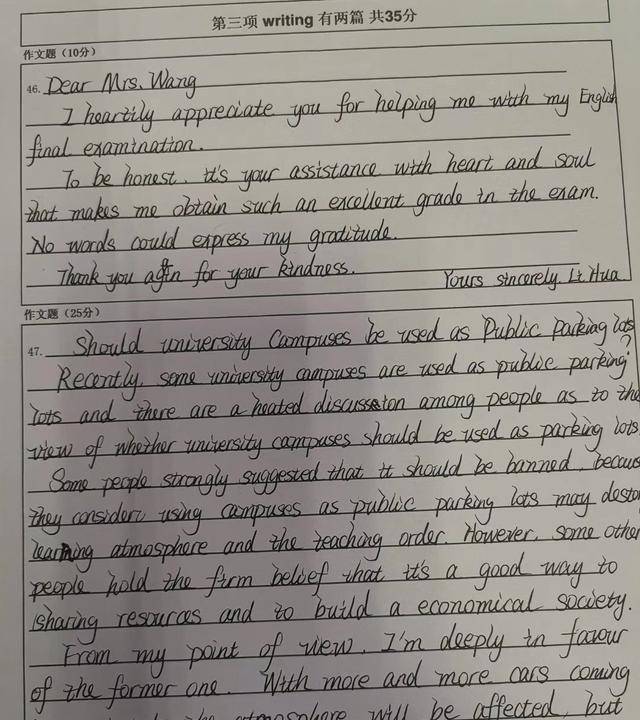 第三项 writing 有两篇 共35分
作文题（10分）
46. Dear Mrs. Wang
I heartily appreciate you for helping me with my English
final examination.
To be honest, it's your assistance with heart and soul
that makes me obtain such an excellent grade in the exam.
No words could express my gratitude.
Thank you again for your kindness.
Yours sincerely, Li Hua
作文题（25分）
47. Should university Campuses be used as Public Parking lots?
Recently, some university campuses are used as public parking
lots and there are a heated discussion among people as to the
view of whether university campuses should be used as parking lots.
Some people strongly suggested that it should be banned, becaus
they consider using campuses as public parking lots may destor
learning atmosphere and the teaching order. However, some other
people hold the firm belief that it's a good way to
sharing resources and to build a economical society.
From my point of view, I'm deeply in favour
of the former one. With more and more cars coming
the atmosphere will be affected, but